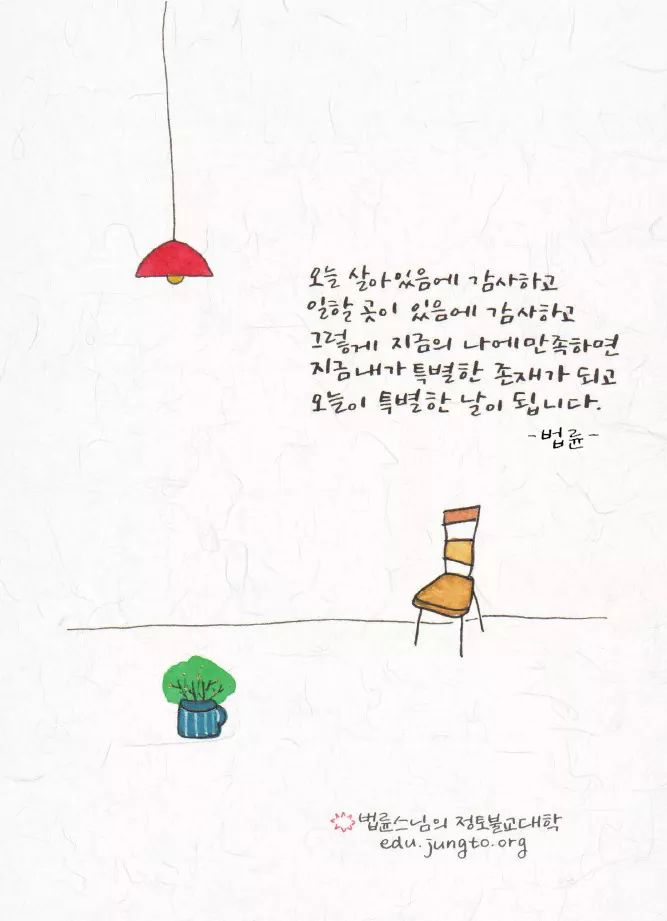 오늘 살아있음에 감사하고
일할 곳이 있음에 감사하고
그렇게 지금의 나에 만족하면
지금 내가 특별한 존재가 되고
오늘이 특별한 날이 됩니다.
-법륜-
법륜스님의 정토불교대학
edu.jungto.org